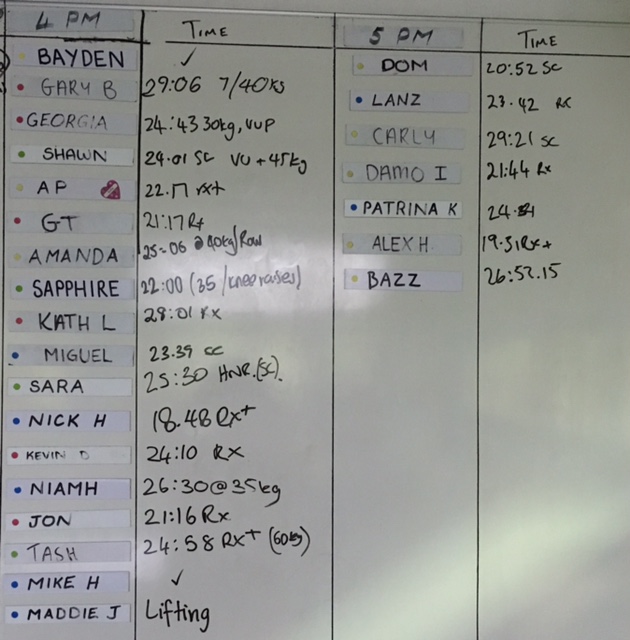 4 PM TIME
BAYDEN ✓
GARY B 29:06 7/40KS
GEORGIA 24:43 30kg, VUP
SHAWN 29.01 SC VU + 45kg
AP 22.17 rx+
GT 21:17 Rx
AMANDA 25-06 @ 40kg/Row
SAPPHIRE 22:00 (35/kneeraises)
KATH L 28:01 RX
MIGUEL 23.39 SC
SARA 25:30 HNR.(SC).
NICK H 18.48 RX+
KEVIN D 24:10 RX
NIAMH 26:30@35kg
JON 21:16 RX
TASH 24:58 RX+ (60kg)
MIKE H ✓
MADDIE J Lifting
5 PM TIME
DOM 20:52 SC
LANZ 23.42 RX
CARLY 29:21 SC
DAMO I 21:44 Rx
PATRINA K
ALEX H 19.31Rx+
BAZZ 26:52.15